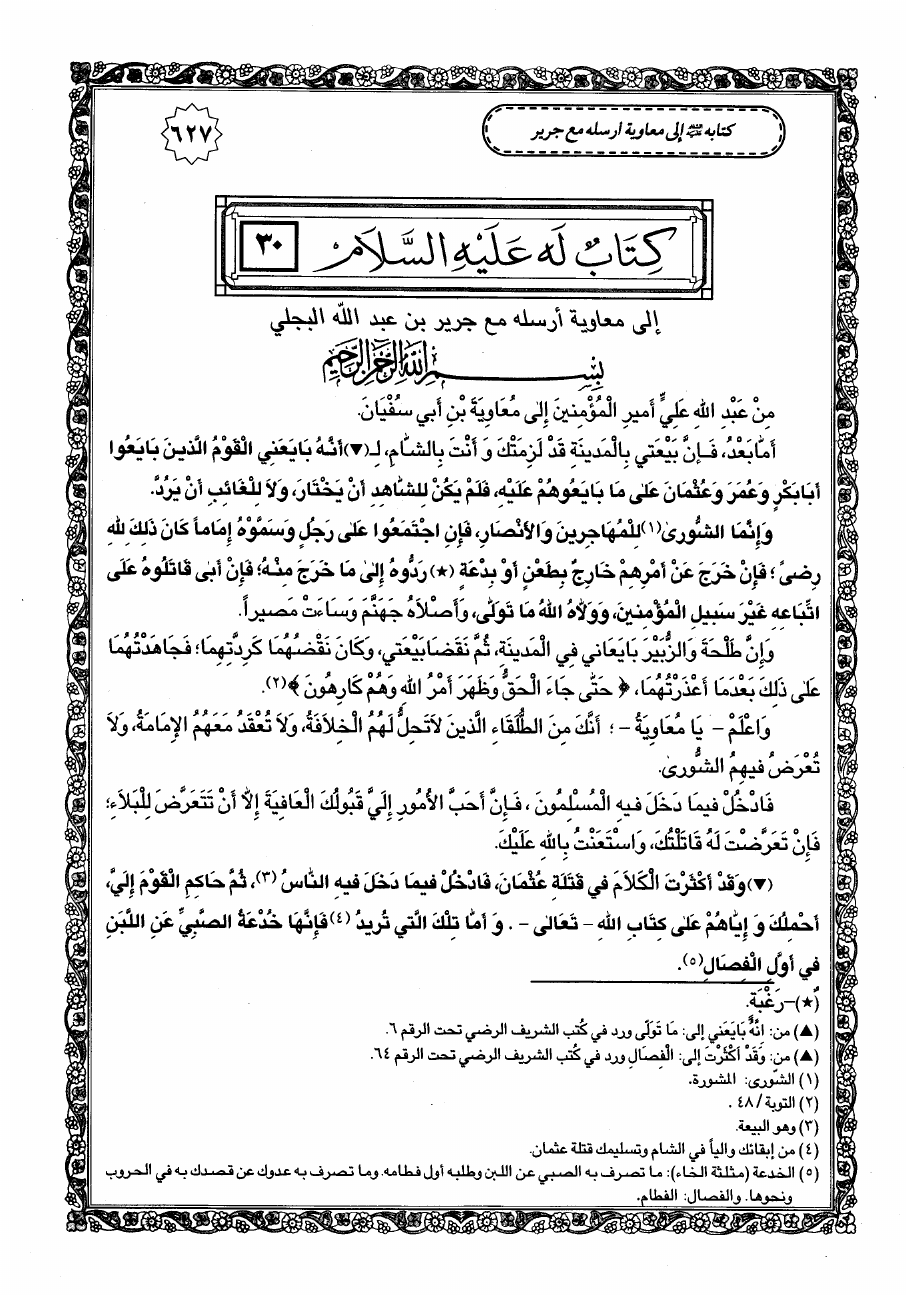 كتابه عليه السلام إلى معاوية أرسله مع جرير
٦٢٧
كِتَابٌ لَه عَلَيْهِ السَّلَام
٣٠
إلى معاوية أرسله مع جرير بن عبد اللّه البجلي
بِسْمِ اللهِ الرَّحْمٰنِ الرَّحِيمِ
مِنْ عَبْدِ اللهِ عَلِيٍّ أَميرِ الْمُؤْمِنينَ إِلى مُعَاوِيَةَ بْنِ أَبي سُفْيَانَ.
أَمَّا بَعْدُ، فَإِنَّ بَيْعَتي بِالْمَدينَةِ قَدْ لَزِمَتْكَ وَ أَنْتَ بِالشَّامِ، لِـ(▼)أَنَّهُ بَايَعَنِي الْقَوْمُ الَّذينَ بَايَعُوا
أَبَابَكْرٍ وَعُمَرَ وَعُثْمَانَ عَلى مَا بَايَعُوهُمْ عَلَيْهِ، فَلَمْ يَكُنْ لِلشَّاهِدِ أَنْ يَخْتَارَ، وَلاَ لِلْغَائِبِ أَنْ يَرُدَّ.
وَإِنَّمَا الشُّورىٰ(١)لِلْمُهَاجِرينَ وَالأَنْصَارِ، فَإِنِ اجْتَمَعُوا عَلى رَجُلٍ وَسَمَّوْهُ إِمَاماً كَانَ ذَلِكَ لِلهِ
رِضىً؛ فَإِنْ خَرَجَ عَنْ أَمْرِهِمْ خَارِجٌ بِطَعْنٍ أَوْ بِدْعَةٍ (★) رَدُّوهُ إِلى مَا خَرَجَ مِنْهُ؛ فَإِنْ أَبى قَاتَلُوهُ عَلَى
اتِّبَاعِهِ غَيْرَ سَبيلِ الْمُؤْمِنينَ، وَوَلاَّهُ اللهُ مَا تَوَلّى، وَأَصْلاَهُ جَهَنَّمَ وَسَاءَتْ مَصيراً.
وَإِنَّ طَلْحَةَ وَالزُّبَيْرَ بَايَعَاني فِي الْمَدينَةِ، ثُمَّ نَقَضَا بَيْعَتي، وَكَانَ نَقْضُهُمَا كَرِدَّتِهِمَا؛ فَجَاهَدْتُهُمَا
عَلى ذَلِكَ بَعْدَمَا أَعْذَرْتُهُمَا، ﴿ حَتّى جَاءَ الْحَقُّ وَظَهَرَ أَمْرُ اللهِ وَهُمْ كَارِهُونَ ﴾(٢).
وَاعْلَمْ - يَا مُعَاوِيَةُ - ؛ أَنَّكَ مِنَ الطُّلَقَاءِ الَّذينَ لاَتَحِلُّ لَهُمُ الْخِلاَفَةُ، وَلاَ تُعْقَدُ مَعَهُمُ الإِمَامَةُ، وَلاَ
تُعْرَضُ فيهِمُ الشُّورىٰ.
فَادْخُلْ فيمَا دَخَلَ فيهِ الْمُسْلِمُونَ ، فَإِنَّ أَحَبَّ الأُمُورِ إِلَيَّ قَبُولُكَ الْعَافِيَةَ إِلاَّ أَنْ تَتَعَرَّضَ لِلْبَلاَءِ؛
فَإِنْ تَعَرَّضْتَ لَهُ قَاتَلْتُكَ، وَاسْتَعَنْتُ بِاللهِ عَلَيْكَ.
(▼)وَقَدْ أَكْثَرْتَ الْكَلاَمَ في قَتَلَةِ عُثْمَانَ، فَادْخُلْ فيمَا دَخَلَ فيهِ النَّاسُ (٣)، ثُمَّ حَاكِمِ الْقَوْمَ إِلَيَّ،
أَحْمِلُكَ وَ إِيَّاهُمْ عَلى كِتَابِ اللهِ - تَعَالىٰ - . وَ أَمَّا تِلْكَ الَّتي تُريدُ (٤) فَإِنَّهَا خُدْعَةُ الصَّبِيِّ عَنِ اللَّبَنِ
في أَوَّلِ الْفِصَالِ(٥).
(★)-رَغْبَةٍ.
(▲) من: أَنَّهُ بَايَعَني إلى: مَا تَوَلّى ورد في كُتب الشريف الرضي تحت الرقم ٦.
(▲) من: وَقَدْ أَكْثَرْتَ إلى: الْفِصَالِ ورد في كُتب الشريف الرضي تحت الرقم ٦٤.
(١) الشّورى: المشورة.
(٢) التوبة/ ٤٨ .
(٣) وهو البيعة.
(٤) من إبقائك والياً في الشام وتسليمك قتلة عثمان.
(٥) الخدعة (مثلثة الخاء): ما تصرف به الصبي عن اللبن وطلبه أول فطامه. وما تصرف به عدوك عن قصدك به في الحروب
ونحوها. والفصال: الفطام.